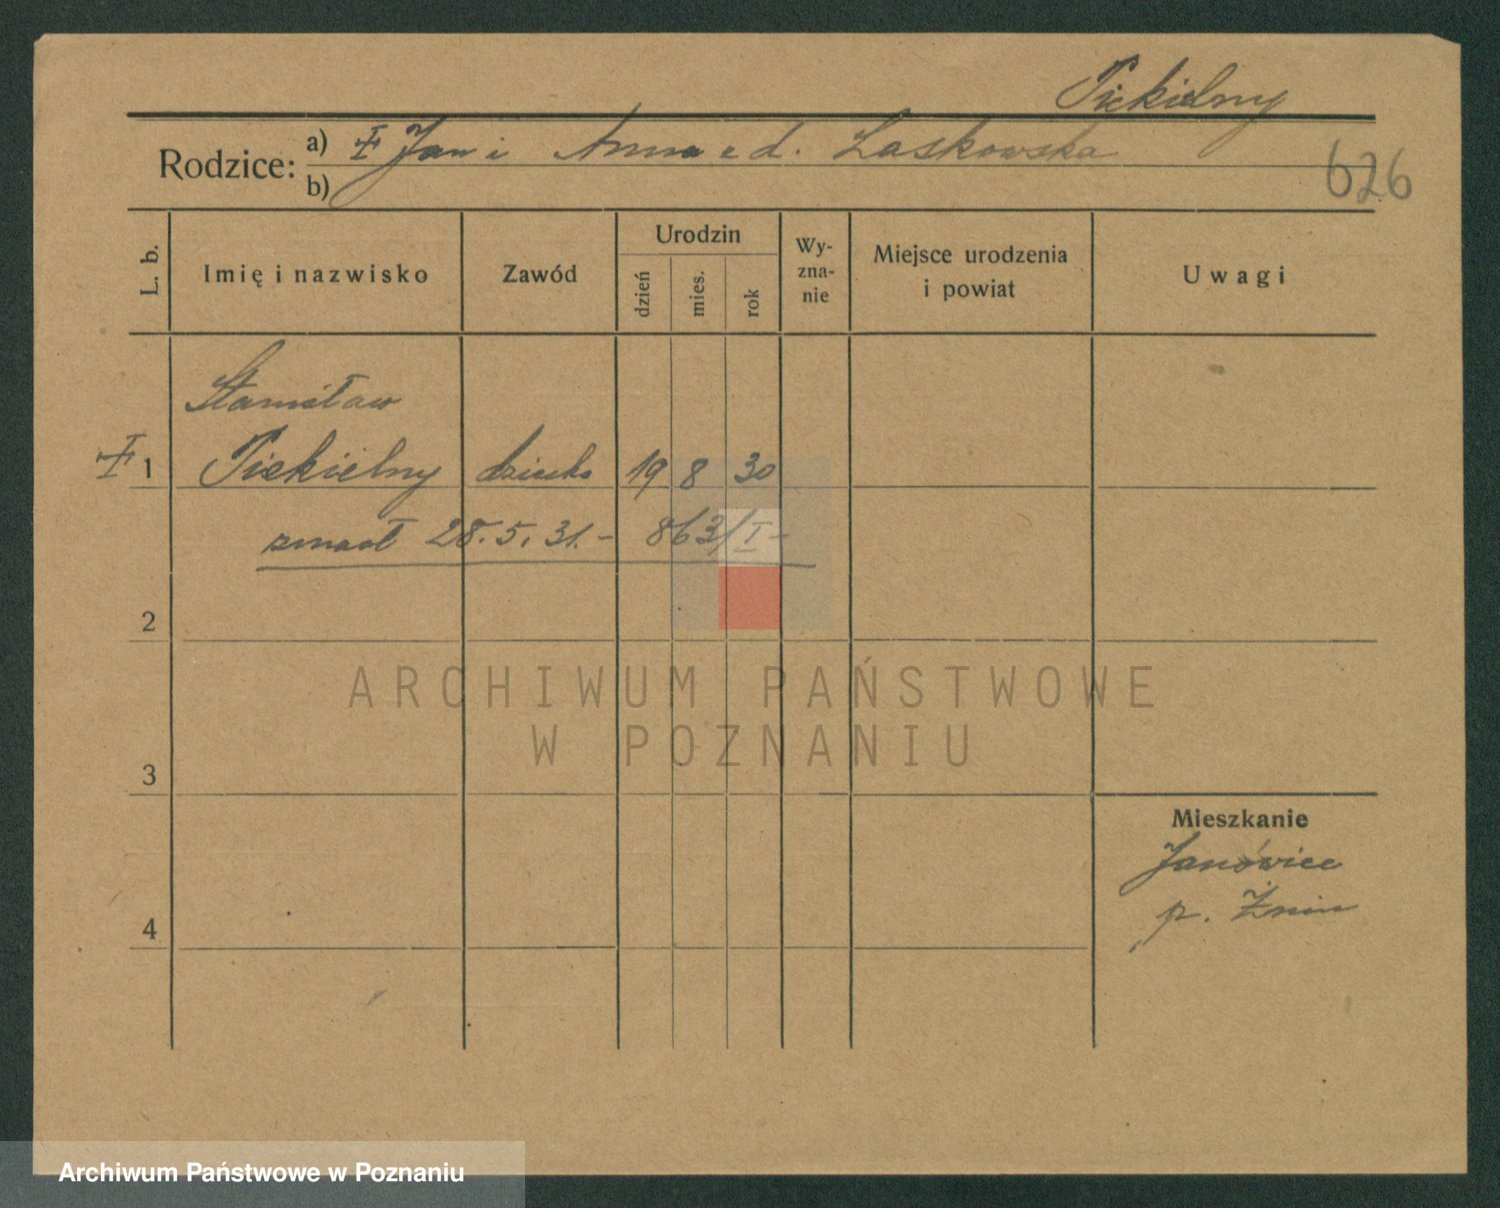 Piekielny
Rodzice: a) Jan i Anna z d. Laskowska
b)
626
L. b. Imię i nazwisko Zawód Urodzin dzień mies. rok Wy-zna-nie Miejsce urodzenia i powiat Uwagi
Stanisław
1 Piekielny dziecko 19 8 30
zmarł 28.5.31.- 863/I-
2
ARCHIWUM PAŃSTWOWE
W POZNANIU
3
Mieszkanie
Janówiec
p. Żnin
4
Archiwum Państwowe w Poznaniu